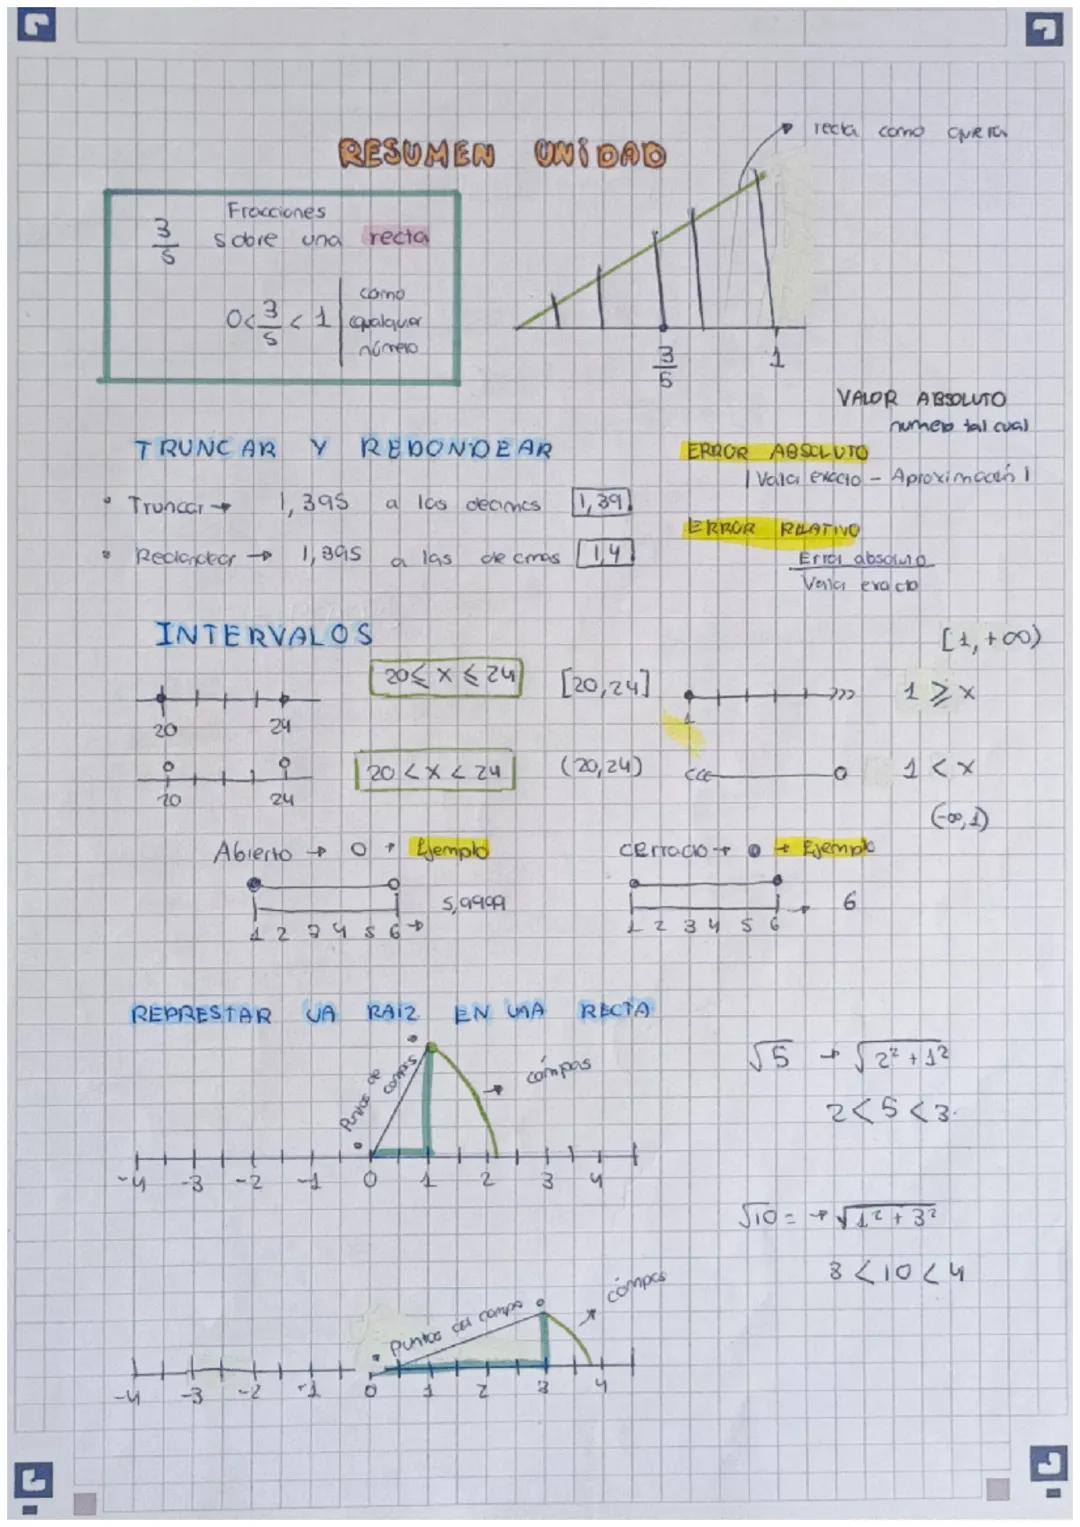 RESUMEN UNIDAD
recta como quiera
3/5 Fracciones
sobre una recta
0<3/5<1 como
cualquier
número
3/5 1
VALOR ABSOLUTO
numero tal cual
TRUNCAR Y REDONDEAR
ERROR ABSOLUTO
|Valor exacto - Aproximación|
• Truncar → 1,395 a las decimas 1,39
ERROR RELATIVO
• Redondear → 1,395 a las decimas 1,4
Error absoluto
Valor exacto
INTERVALOS
[1,+∞)
20 ≤ x ≤ 24 [20,24]
20 24
1
1 ⩾ x
20 < x < 24 (20,24)
20 24
1 < x
(-∞,1)
Abierto → o → Ejemplo
cerrado → • → Ejemplo
5,9999
1 2 3 4 5 6 →
6
1 2 3 4 5 6
REPRESTAR UA RAIZ EN UNA RECTA
Puntos de compas
compas
√5 → √2²+1²
2<5<3.
-4 -3 -2 -1 0 1 2 3 4
√10 = → √1²+3²
3<10<4
puntos del compa
compas
-4 -3 -2 -1 0 1 2 3 4